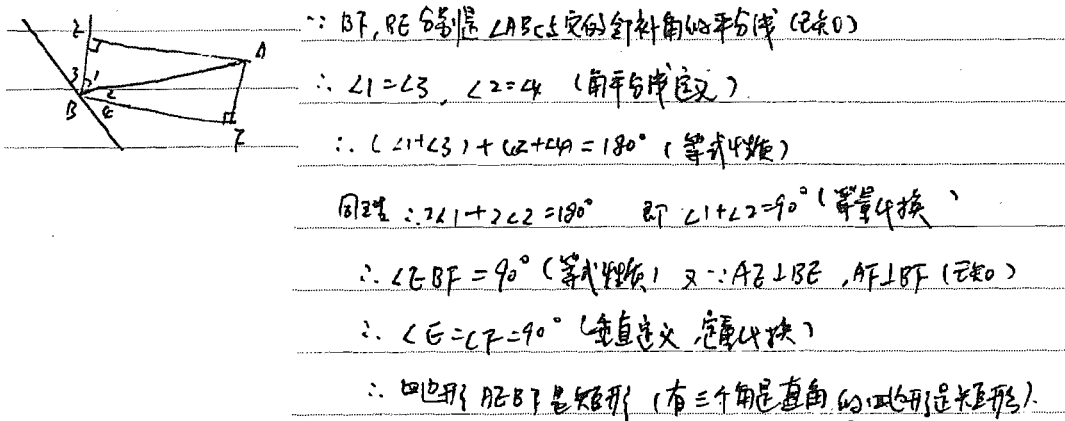 ∵ BF, BE 分别是 ∠ABC与它的邻补角的平分线 (已知)
∴ ∠1=∠3, ∠2=∠4 (角平分线定义)
∴ (∠1+∠3)+(∠2+∠4)=180° (等式性质)
∴2∠1+2∠2=180° 即 ∠1+∠2=90° (等量代换)
∴ ∠EBF=90° (等式性质) 又∵AE⊥BE, AF⊥BF (已知)
∴ ∠E=∠F=90° (垂直定义 代换)
∴ 四边形 AEBF 是矩形 (有三个角是直角的四边形是矩形).
E
A
3 1
2
B 4
F